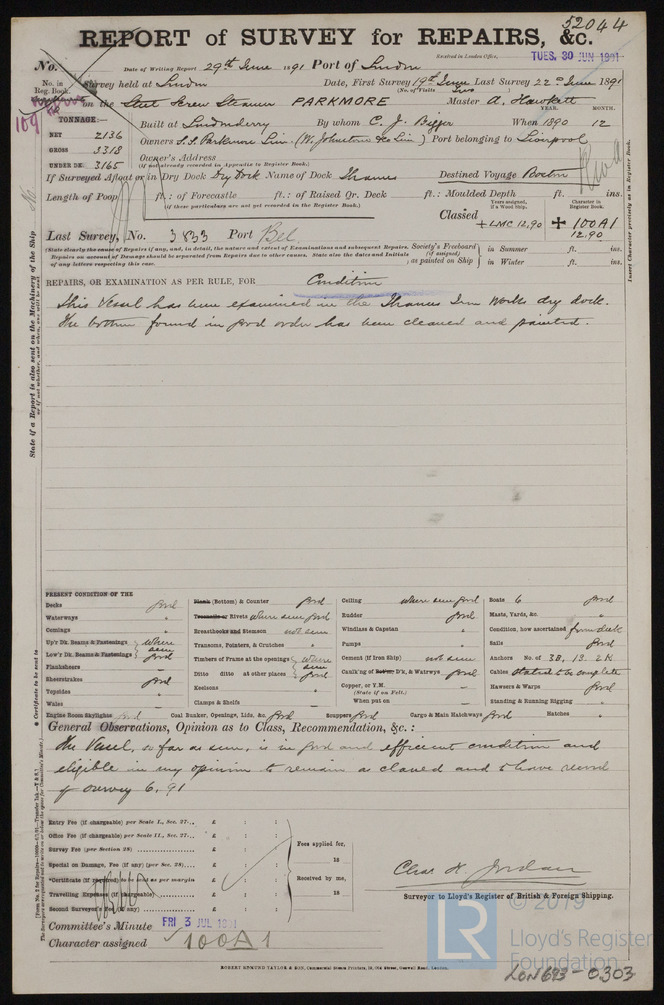 52044
REPORT of SURVEY for REPAIRS, &c.
Received in London Office, TUES. 30 JUN 1891
No. Date of Writing Report 29th June 1891 Port of London
No. in Reg. Book. Survey held at London Date, First Survey 19th June Last Survey 22nd June 1891
(No. of Visits two)
on the Steel Screw Steamer PARKMORE Master A. Hawkett
TONNAGE:— Built at Londonderry By whom C. J. Bigger When 1890 YEAR. 12 MONTH.
NET 2136
GROSS 3318 Owners S.S. Parkmore Lim. (W. Johnston & Co Lim.) Port belonging to Liverpool
UNDER DK. 3165 Owner's Address
(if not already recorded in Appendix to Register Book.)
If Surveyed Afloat or in Dry Dock Dry Dock Name of Dock Thames Destined Voyage Boston
Length of Poop ft.: of Forecastle ft.: of Raised Qr. Deck ft.: Moulded Depth ft. ins.
(if these particulars are not yet recorded in the Register Book.)
Classed Years assigned, if a Wood Ship. Character in Register Book.
+LMC 12,90 + 100A1
12.90
Last Survey, No. 3833 Port Bel
(State clearly the cause of Repairs if any, and, in detail, the nature and extent of Examinations and subsequent Repairs.
Repairs on account of Damage should be separated from Repairs due to other causes. State also the dates and Initials
of any letters respecting this case.
Society's Freeboard (if assigned) as painted on Ship in Summer ft. ins.
in Winter ft. ins.
REPAIRS, OR EXAMINATION AS PER RULE, FOR Condition
This Vessel has been examined in the Thames Iron Works dry dock.
The bottom found in good order has been cleaned and painted.
PRESENT CONDITION OF THE
Decks good
Waterways "
Comings "
Up'r Dk. Beams & Fastenings where seen good
Low'r Dk. Beams & Fastenings
Planksheers
Sheerstrakes good
Topsides "
Wales "
Engine Room Skylights good
Blank (Bottom) & Counter good
Treenails or Rivets where seen good
Breasthooks and Stemson not seen
Transoms, Pointers, & Crutches
Timbers of Frame at the openings where seen good
Ditto ditto at other places
Keelsons
Clamps & Shelfs
Coal Bunker, Openings, Lids, &c. good
Ceiling where seen good
Rudder good
Windlass & Capstan "
Pumps "
Cement (if Iron Ship) not seen
Caulk'ng of Bottom D'k, & Watrwys good
Copper, or Y.M.
(State if on Felt.)
When put on
Scuppers good Cargo & Main Hatchways good
Boats 6 good
Masts, Yards, &c. "
Condition, how ascertained from deck
Sails good
Anchors No. of 3B, 1S. 2K
Cables stated to be complete
Hawsers & Warps good
Standing & Running Rigging "
Hatches "
General Observations, Opinion as to Class, Recommendation, &c. :
The Vessel, so far as seen, is in good and efficient condition and
eligible in my opinion to remain as classed and to have record
of survey 6,91
Entry Fee (if chargeable) per Scale I., Sec. 27... £ : :
Office Fee (if chargeable) per Scale II., Sec. 27... £ : :
Survey Fee (per Section 28) £ : :
Special on Damage, Fee (if any) (per Sec. 28) £ : :
*Certificate (if required) to be sent as per margin £ : :
Travelling Expenses (if chargeable) £ : :
Second Surveyor's Fee (if any) £ : :
Fees applied for,
18
Received by me,
18
Chas H. Jordan
Surveyor to Lloyd's Register of British & Foreign Shipping.
Committee's Minute FRI 3 JUL 1891
Character assigned 100A1
ROBERT EDMUND TAYLOR & SON, Commercial Steam Printers, 19, Old Street, Goswell Road, London.
State if a Report is also sent on the Machinery of the Ship
Certificate to be sent to
(Insert) Character precisely as in Register Book.
© 2019
LR
Lloyd's Register
Foundation
LON693-0303